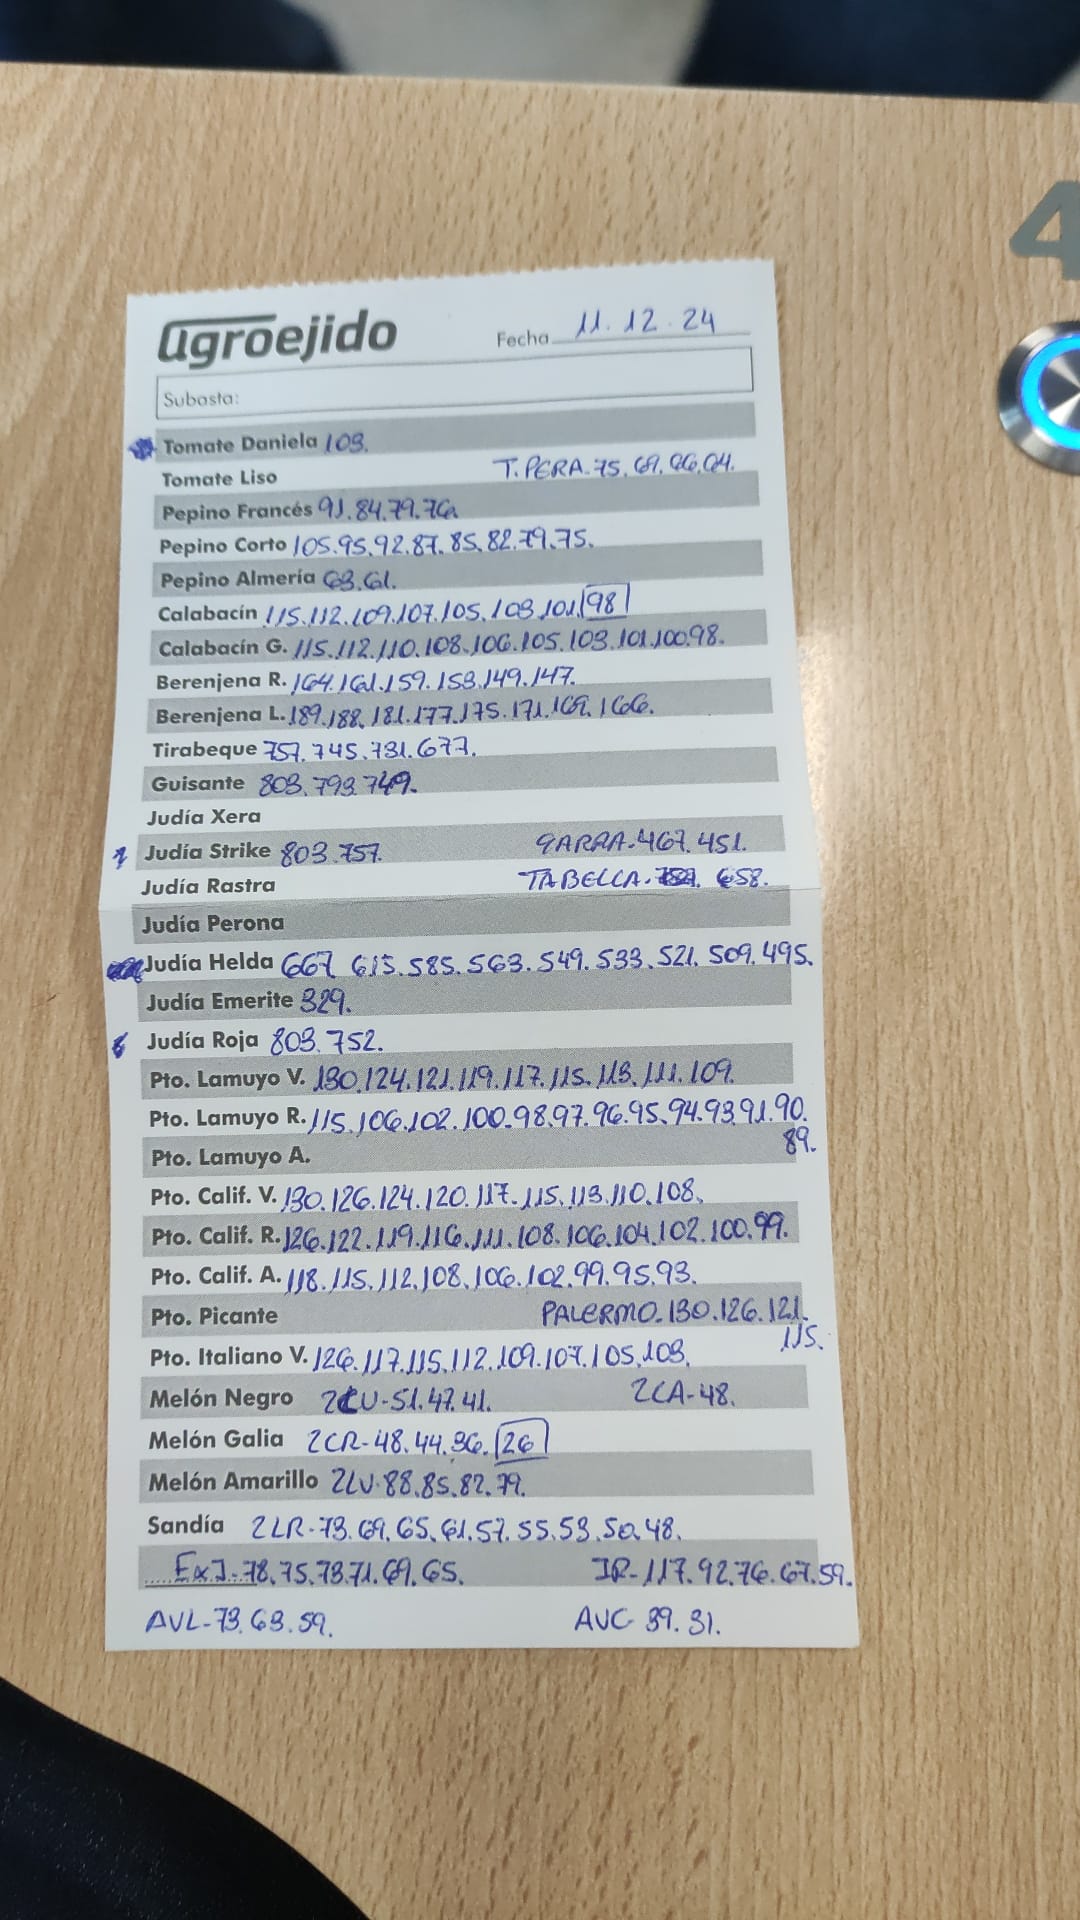 agroejido Fecha 11.12.24
Subasta:
Tomate Daniela 103.
Tomate Liso T.PERA-75.69.66.64.
Pepino Francés 91.84.79.76.
Pepino Corto 105.95.92.87.85.82.79.75.
Pepino Almería 63.61.
Calabacín 115.112.109.107.105.103.101.98
Calabacín G. 115.112.110.108.106.105.103.101.100.98.
Berenjena R. 164.161.159.153.149.147.
Berenjena L. 189.188.181.177.175.171.169.166.
Tirabeque 757.745.731.677.
Guisante 803.793.749.
Judía Xera
Judía Strike 803.757. GARRA-467.451.
Judía Rastra TABELLA- 658.
Judía Perona
Judía Helda 667 615.585.563.549.533.521.509.495.
Judía Emerite 329.
Judía Roja 803.752.
Pto. Lamuyo V. 130.124.121.119.117.115.113.111.109.
Pto. Lamuyo R. 115.106.102.100.98.97.96.95.94.93.91.90.
89.
Pto. Lamuyo A.
Pto. Calif. V. 130.126.124.120.117.115.113.110.108.
Pto. Calif. R. 126.122.119.116.111.108.106.104.102.100.99.
Pto. Calif. A. 118.115.112.108.106.102.99.95.93.
Pto. Picante PALERMO-130.126.121.
115.
Pto. Italiano V. 126.117.115.112.109.107.105.103.
Melón Negro 2CU-51.47.41. 2CA-48.
Melón Galia 2CR-48.44.36.26
Melón Amarillo 2LV-88.85.82.79.
Sandía 2LR-73.69.65.61.57.55.53.50.48.
ExJ-78.75.73.71.69.65. IR-117.92.76.67.59.
AVL-73.63.59. AVC-39.31.
4